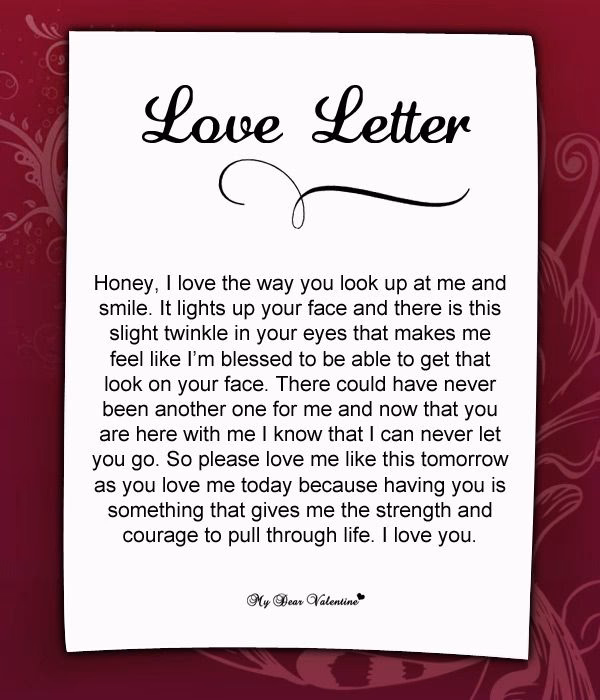 Love Letter
Honey, I love the way you look up at me and
smile. It lights up your face and there is this
slight twinkle in your eyes that makes me
feel like I’m blessed to be able to get that
look on your face. There could have never
been another one for me and now that you
are here with me I know that I can never let
you go. So please love me like this tomorrow
as you love me today because having you is
something that gives me the strength and
courage to pull through life. I love you.
My Dear Valentine